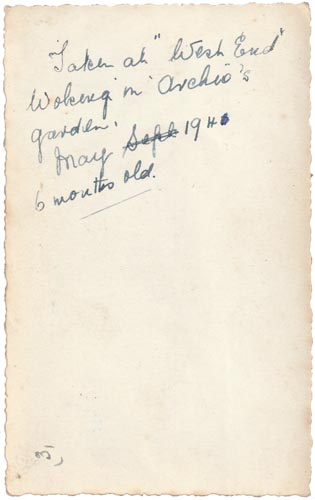 Taken at "West End"
Woking in Archie's
garden.
May Sept 1940
6 months old.